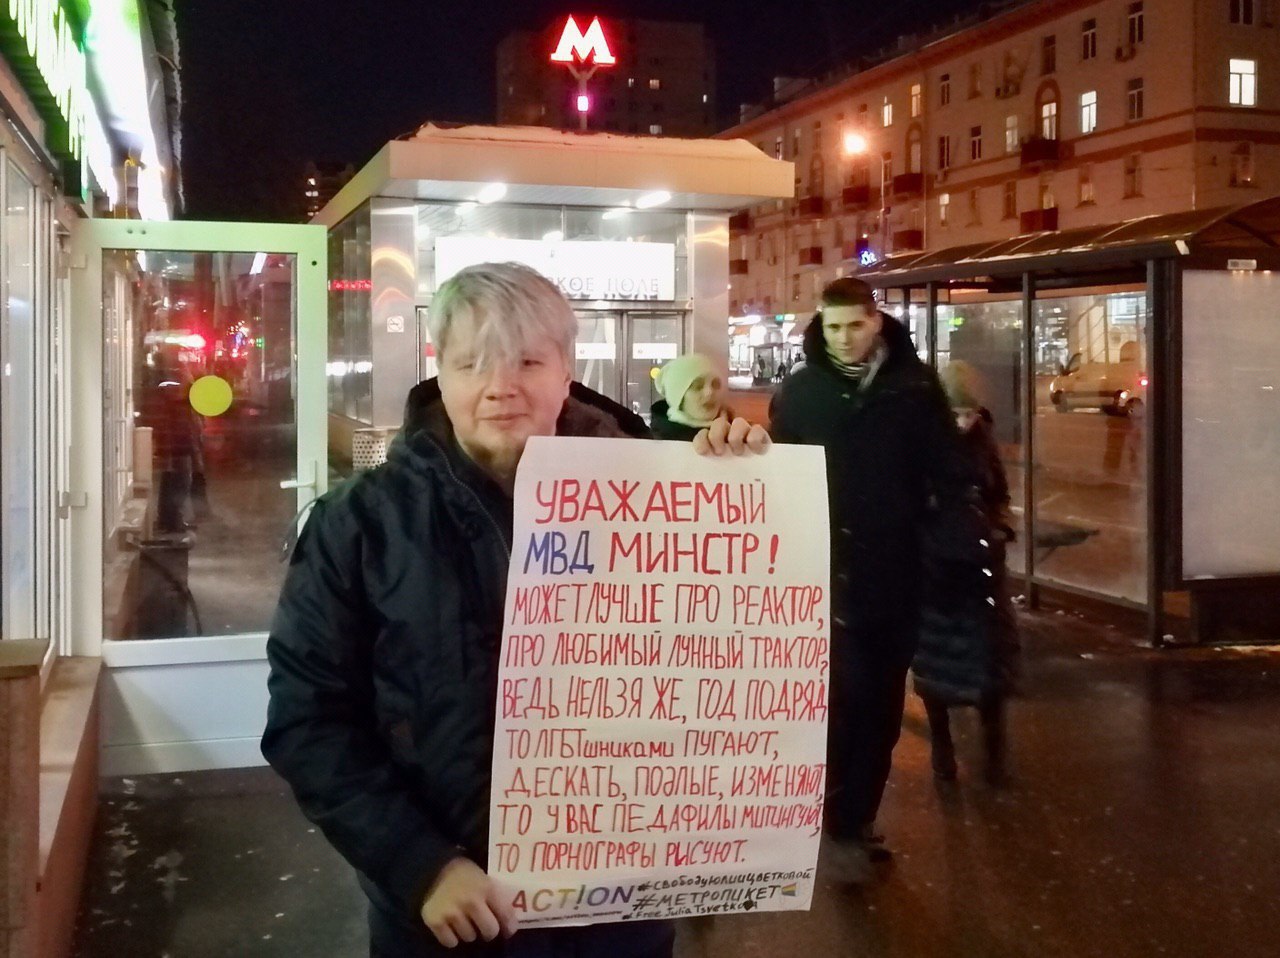 М
КОЕ ПОЛЕ
УВАЖАЕМЫЙ
МВД МИНСТР!
МОЖЕТ ЛУЧШЕ ПРО РЕАКТОР,
ПРО ЛЮБИМЫЙ ЛУННЫЙ ТРАКТОР?
ВЕДЬ НЕЛЬЗЯ ЖЕ, ГОД ПОДРЯД
ТО ЛГБТшниками ПУГАЮТ,
ДЕСКАТЬ, ПОДЛЫЕ, ИЗМЕНЯЮТ,
ТО У ВАС ПЕДАФИЛЫ МИТИНГУЮТ,
ТО ПОРНОГРАФЫ РИСУЮТ.
ACT!ON #СВОБОДУЮЛИИЦВЕТКОВОЙ
#МЕТРОПИКЕТ
# Free Julia Tsvetkova